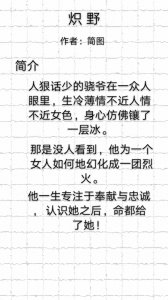 炽 野
作者：简图
简介
人狠话少的骁爷在一众人
眼里，生冷薄情不近人情
不近女色，身心仿佛镶了
一层冰。
那是没人看到，他为一个
女人如何地幻化成一团烈
火。
他一生专注于奉献与忠诚
，认识她之后，命都给
了她！